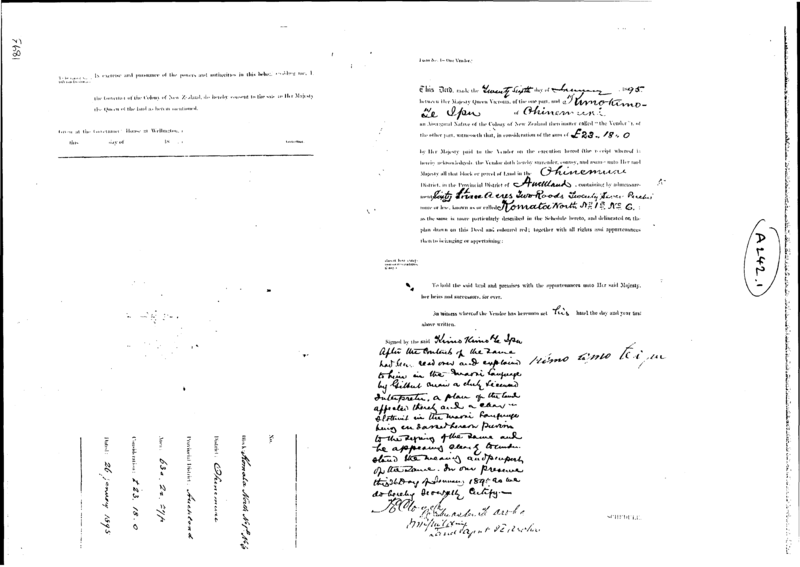 To be signed by
In exercise and pursuance of the powers and authorities in this behalf enabling me, I
the Governor of the Colony of New Zealand, do hereby consent to the sale to Her Majesty
the Queen of the land as herein mentioned.
Given at the Government House at Wellington,
this day of 18 .
Governor.
No.
Block: Komata North No 1 No 6
District: Ohinemuri
Provincial District: Auckland
Area: 63a. 2r. 27p
Consideration: £23. 18. 0
Dated: 26 January 1895
This Deed, made the Twenty Sixth day of January 1895
between Her Majesty Queen Victoria, of the one part, and Kimokimo-
Te Ipu of Ohinemuri
an Aboriginal Native of the Colony of New Zealand (hereinafter called "the Vendor"), of
the other part, witnesseth that, in consideration of the sum of £23.18.0
by Her Majesty paid to the Vendor on the execution hereof (the receipt whereof is
hereby acknowledged), the Vendor doth hereby surrender, convey, and assure unto Her said
Majesty all that block or parcel of Land in the Ohinemuri
District, in the Provincial District of Auckland, containing by admeasure-
ment Sixty Three Acres Two Roods Twenty Seven Perches
more or less, known as or called Komata North No 1 No 6.
as the same is more particularly described in the Schedule hereto, and delineated on the
plan drawn on this Deed and coloured red; together with all rights and appurtenances
thereto belonging or appertaining:
To hold the said land and premises with the appurtenances unto Her said Majesty,
her heirs and successors, for ever.
In witness whereof the Vendor has hereunto set his hand the day and year first
above written.
Signed by the said Kimo Kimo Te Ipu
After the contents of the same
had been read over and explained
to him in the Maori Language
by Gilbert Mair a duly Licensed
Interpreter, a plan of the land
appended thereto and a clear
statement in the Maori Language
being endorsed hereon previous
to the signing of the same and
he appearing clearly to under-
stand the meaning and purport
of the same. In our presence
this day of January 1895 as we
do hereby severally Certify
kimo kimo te ipu
SCHEDULE.
A 242.1